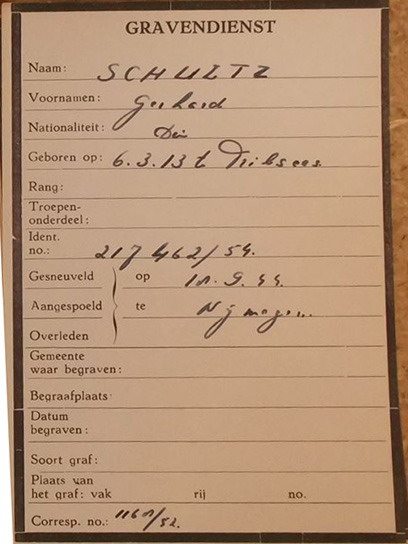 GRAVENDIENST
Naam: SCHULTZ
Voornamen: Gerhard
Nationaliteit:
Geboren op: 6.3.13 t Tribsees
Rang:
Troepen-
onderdeel:
Ident.
no.: 217462/54.
Gesneuveld op 9.44.
Aangespoeld te Nijmegen.
Overleden
Gemeente
waar begraven:
Begraafplaats
Datum
begraven:
Soort graf:
Plaats van
het graf: vak rij no.
Corresp. no.: